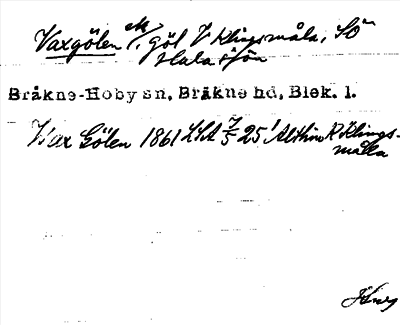 Vaxgölen M/. göl V Klingsmåla, SO
Halasjön
Bräkne-Hoby sn, Bräkne hd, Blek. l.
Wax Gölen 1861 LSA 7/5 25 Althin K Klings-
målla